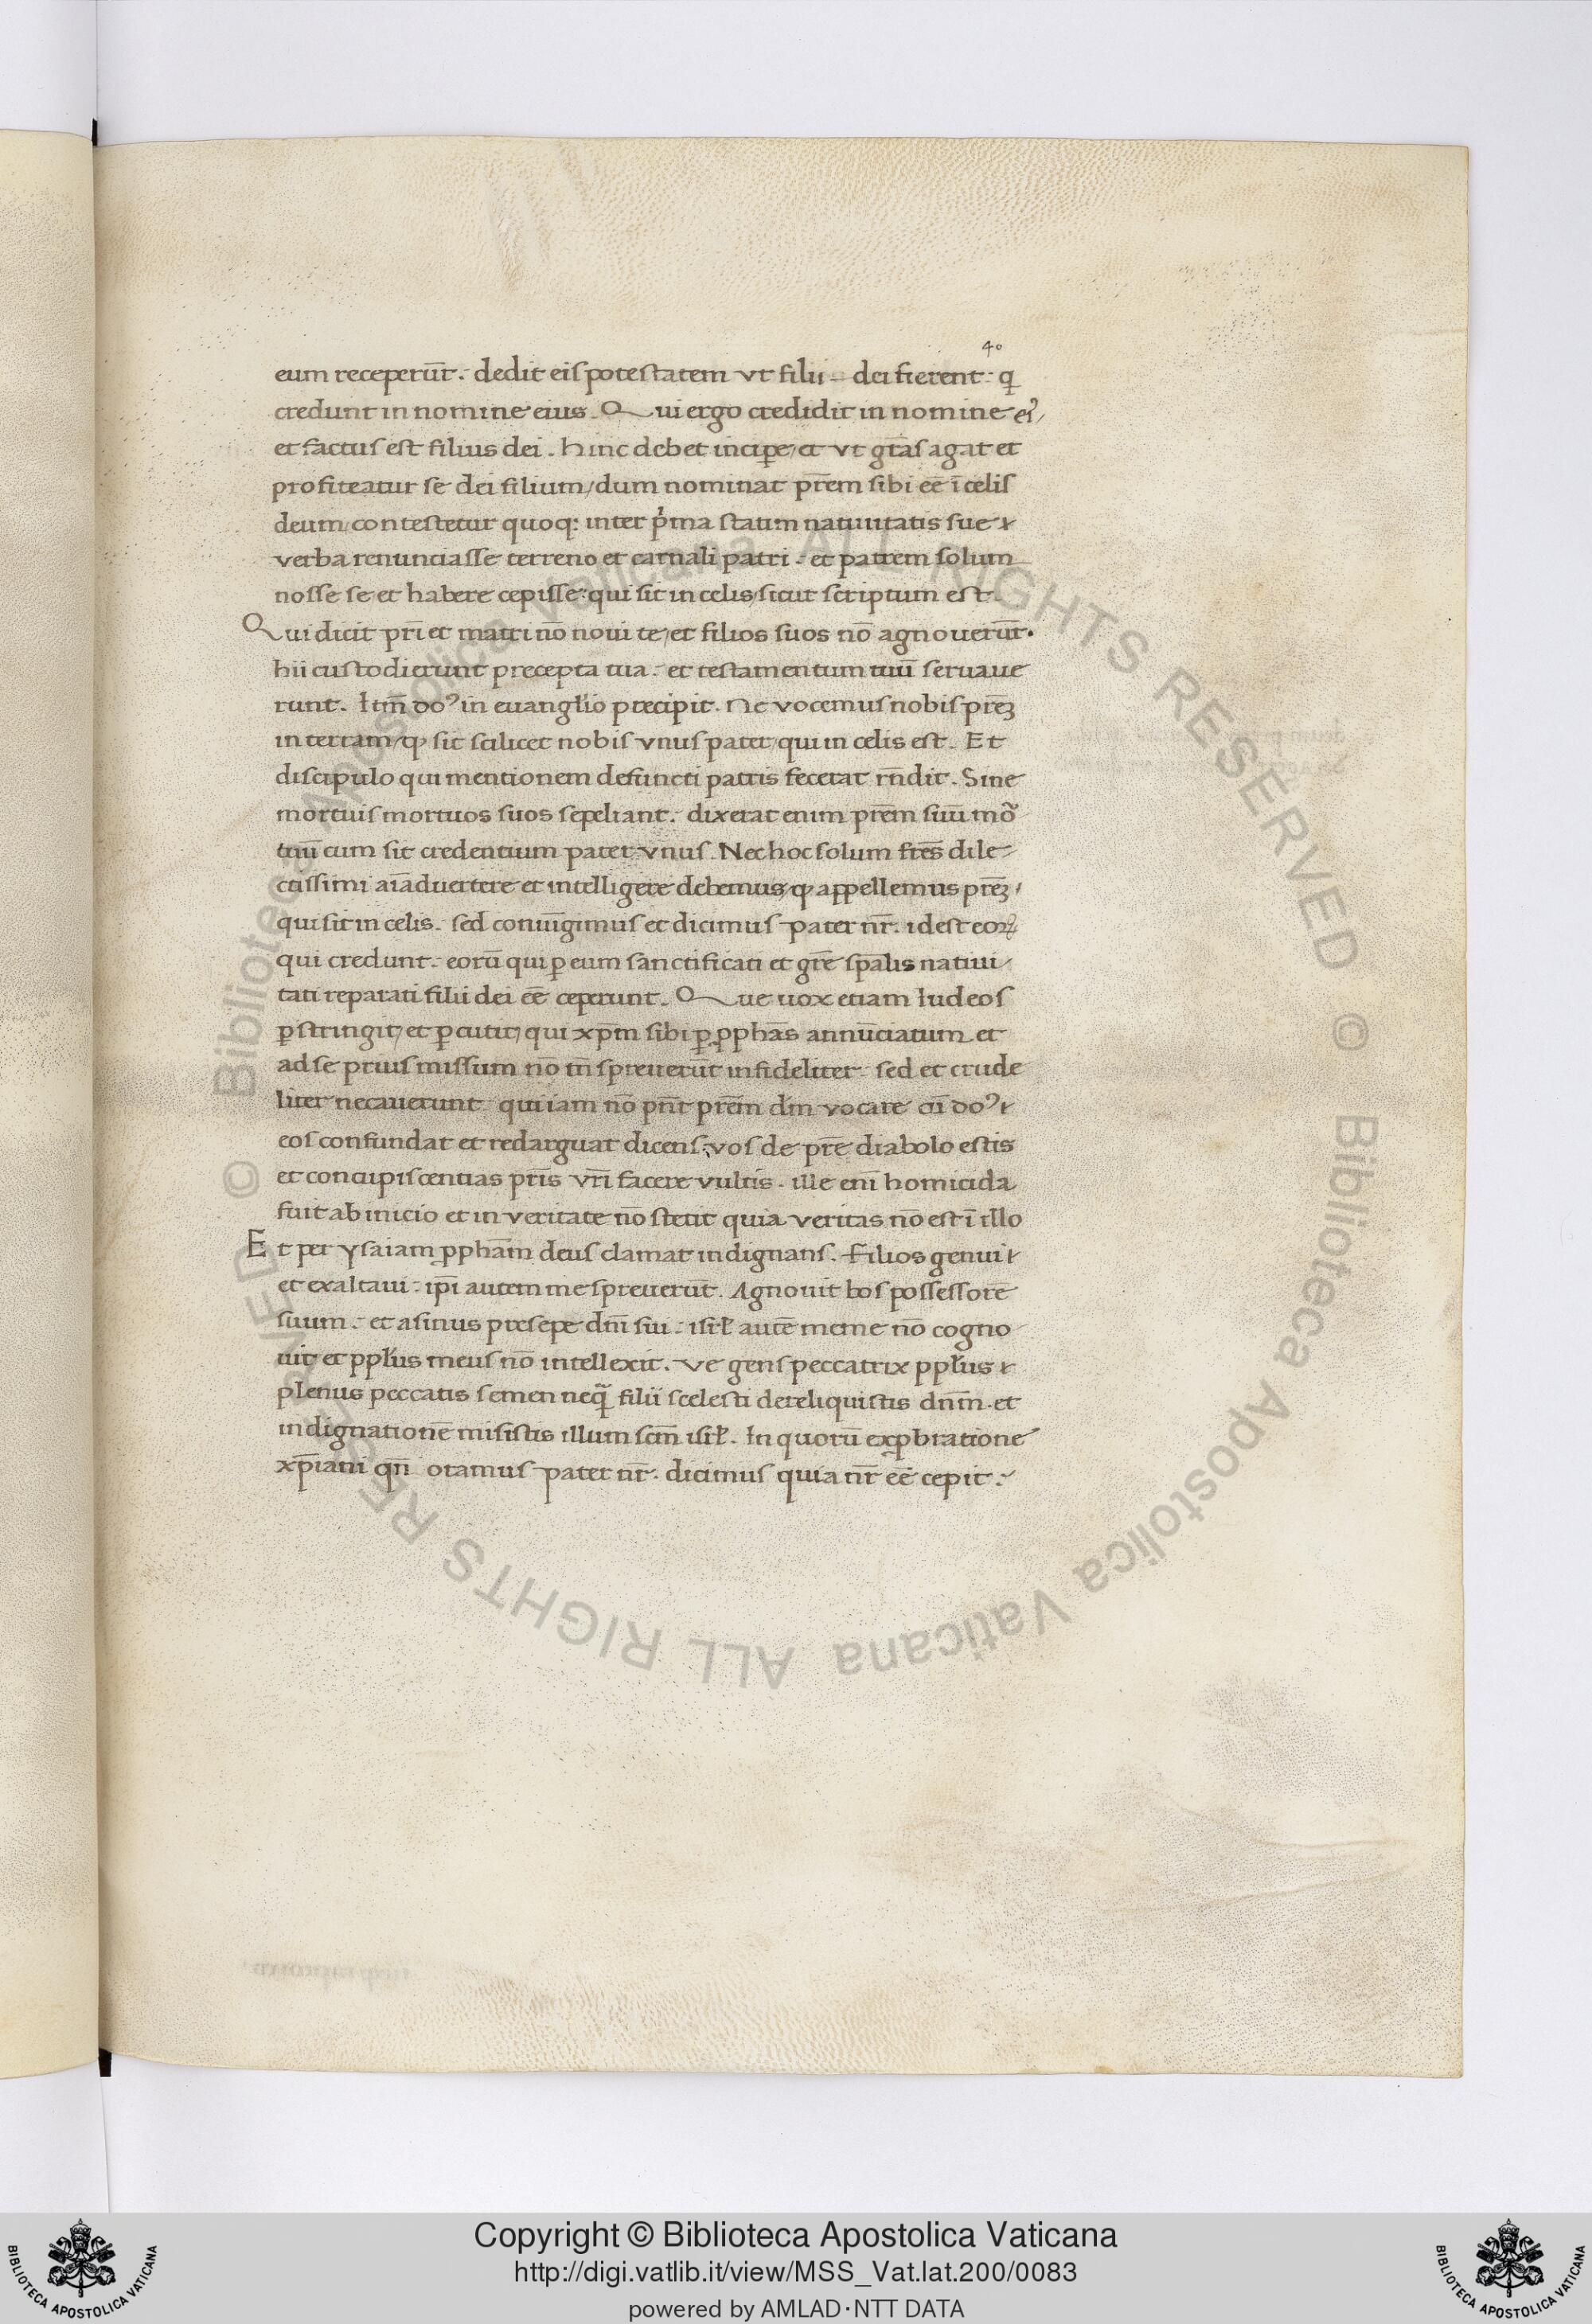 40
eum receperūt. dedit eis potestatem vt filii dei fierent: qͥ
credunt in nomine eius. Qui ergo credidit in nomine eiꝰ/
et factus est filius dei. hinc debet incipe̅/ et vt gr̄as agat et
profiteatur se dei filium/dum nominat pr̄em sibi eē ī celis
deum/contestetur quoqꝫ inter pͥma statim natiuitatis sue
verba renunciasse terreno et carnali patri. et patrem solum
nosse se et habere cepisse: qui sit in celis/sicut scriptum est.
Qui dicit pr̄i et matri nō noui te/et filios suos nō agnouerūt.
hii custodierunt precepta tua. et testamentum tuū seruaue
runt. Itm̄ do꣼ in euangłio precipit. Ne vocemus nobis pr̄eꝫ
in terram/ꝙ sit scilicet nobis vnus pater/qui in celis est. Et
discipulo qui mentionem defuncti patris fecerat rn̄dit. Sine
mortuis mortuos suos sepeliant. dixerat enim pr̄em suū mo
tuū cum sit credentium pater vnus. Nec hoc solum fr̄es dile
ctissimi aīaduertere et intelligere debemus/ꝙ appellemus pr̄eꝫ
qui sit in celis. sed coniūgimus et dicimus pater nr̄. id est eoꝝ
qui credunt. eorū qui ꝑ eum sanctificati et gr̄e sp̄alis natiui
tati reparati filii dei eē ceperunt. Que uox etiam Iudeos
ꝑstringit/et ꝑcutit/qui xp̄m sibi ꝑ ꝓphās annūciatum et
ad se prius missum nō tm̄ spreuerūt infideliter. sed et crude
liter necauerunt qui iam nō pn̄t pr̄em dm̄ vocare cū do꣼
eos confundat et redarguat dicens: vos de pr̄e diabolo estis
et concupiscentias pr̄is vr̄i facere vultis. ille enī homicida
fuit ab inicio et in veritate nō stetit quia veritas nō est ī illo
Et per ysaiam ꝓphām deus clamat indignans. Filios genui
et exaltaui. ip̄i autem me spreuerūt. Agnouit bos possessorē
suum. et asinus presepe dn̄i sui. isrł autē meme nō cogno
uit et ppłus meus nō intellexit. Ve gens peccatrix ppłus
plenus peccatis semen neqͣ filii scelesti dereliquistis dn̄m. et
indignationē misistis illum scm̄ isrł. In quorū exꝓbratione
xp̄iani qn̄ oramus pater nr̄. dicimus quia nr̄ eē cepit.
© Biblioteca Apostolica Vaticana ALL RIGHTS RESERVED © Biblioteca Apostolica Vaticana ALL RIGHTS RESERVED
Copyright © Biblioteca Apostolica Vaticana
http://digi.vatlib.it/view/MSS_Vat.lat.200/0083
powered by AMLAD·NTT DATA
BIBLIOTECA APOSTOLICA VATICANA
BIBLIOTECA APOSTOLICA VATICANA